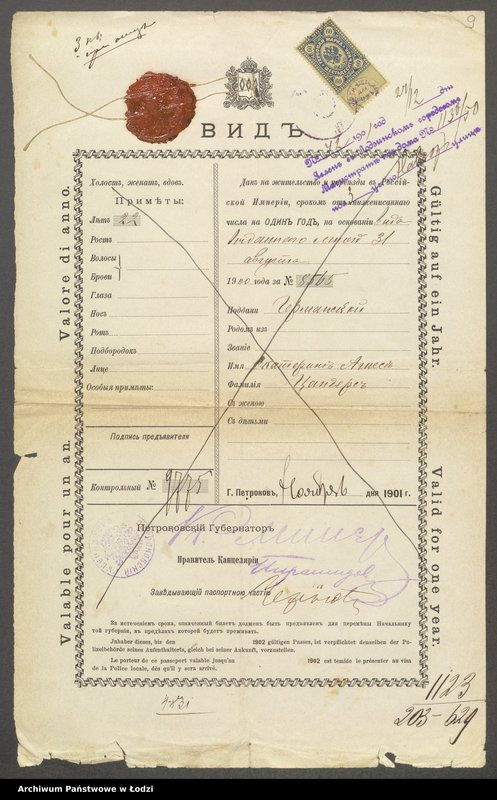 9
3 кв.
ВИДЪ
Valore di anno.
Valable pour un an.
Gültig auf ein Jahr.
Valid for one year.
Холостъ, женатъ, вдовъ.
Примѣты:
Лѣтъ 22
Ростъ
Волосы
Брови
Глаза
Носъ
Ротъ
Подбородокъ
Лице
Особыя примѣты:
Подпись предъявителя
Контрольный № 9775
Данъ на жительство и переѣзды въ Россій-
ской Имперіи, срокомъ отъ нижеписаннаго
числа на ОДИНЪ ГОДЪ, на основаніи Вида
выданнаго мною 31
августа
1900 года за № 8565
Поддани Германской
Родомъ изъ
Званіе
Имя Екатеринѣ Агнесѣ
Фамилія Цантерсъ
Съ женою
Съ дѣтьми
Г. Петроковъ, Ноября дня 1901 г.
Петроковскій Губернаторъ
Правитель Канцеляріи
Завѣдывающій паспортною частію
За истеченіемъ срока, означенный билетъ долженъ быть предъявленъ для перемѣны Начальнику
той губерніи, въ предѣлахъ которой будетъ проживать.
Jnhaber dieses, bis den 1902 gültigen Passes, ist verpflichtet denselben der Po-
lizeibehörde seines Aufenthaltsts, gleich bei seiner Ankunft, vorzustellen.
Le porteur de ce passeport valable jusqu'au 1902 est tenide le présenter au visa
de la Police locale, dès qu'il y sera arrivé.
1123
203-629
Archiwum Państwowe w Łodzi